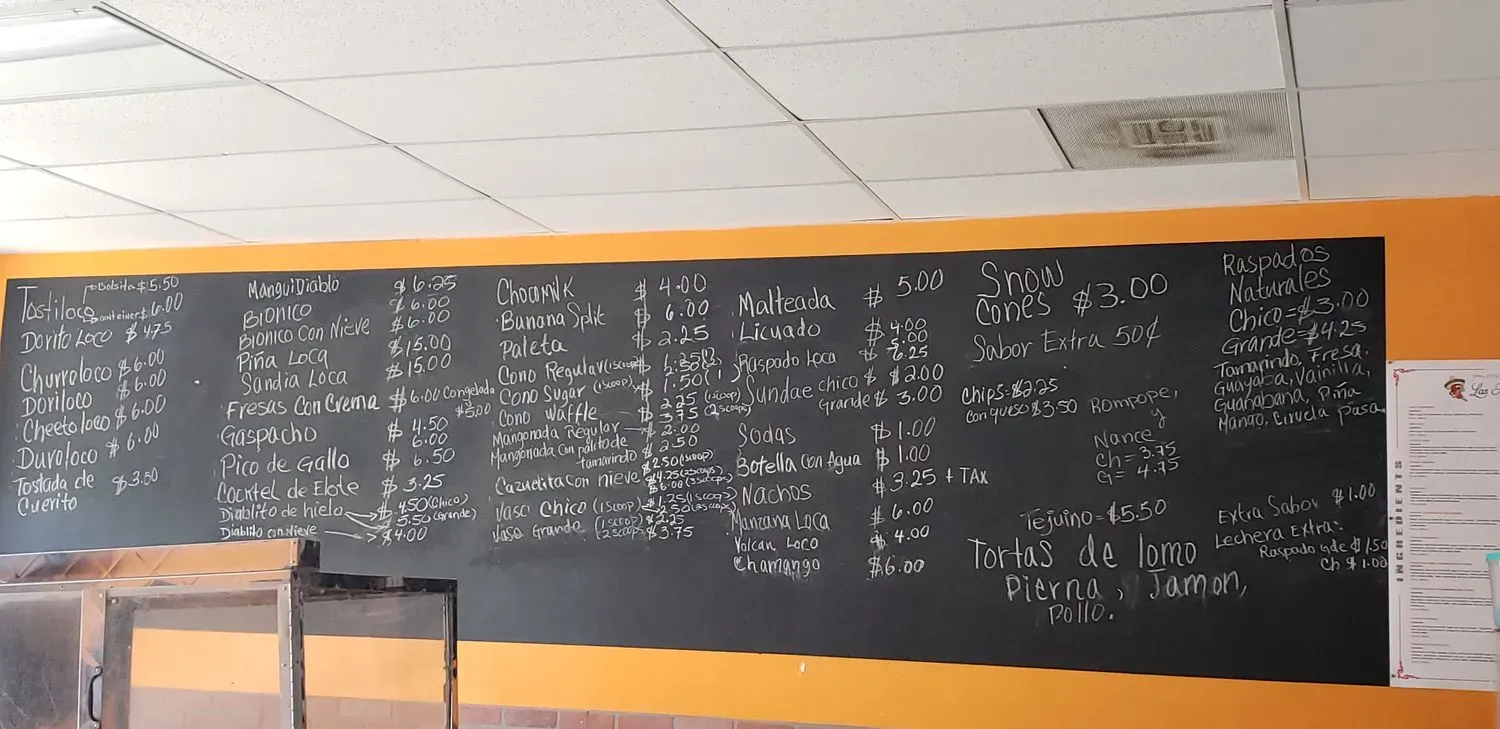 Tostiloco Bolsita $5.50
container $6.00
Dorito Loco $4.75
Churroloco $6.00
Doriloco $6.00
Cheetoloco $6.00
Duroloco $6.00
Tostada de $3.50
Cuerito
ManguiDiablo $6.25
BIONICO $6.00
BIONICO Con Nieve $6.00
Piña Loca $15.00
Sandia Loca $15.00
Fresas Con Crema $6.00 Congelada
$5.00
Gaspacho $4.50
Pico de Gallo 6.00
Cocktel de Elote $6.50
$3.25
Diablito de hielo $4.50 (Chico)
5.50 (Grande)
Diablito con Nieve $4.00
Chocomilk $4.00
Banana Split $6.00
Paleta $2.25
Cono Regular (1scoop)
Cono Sugar (1scoop)
Cono Waffle 2.25 (1scoop)
3.75 (2scoops)
Mangonada Regular $2.00
Mangonada Con palito de $2.50
tamarindo
Cazuelita con nieve $2.50 (1scoop)
$4.25 (2scoops)
$6.00 (3scoops)
Vaso Chico (1scoop) $1.25 (1scoop)
2.50 (2scoops)
Vaso Grande (1scoop) $2.25
(2scoops) $3.75
Malteada $5.00
Licuado $4.00
5.00
Raspado Loca $6.25
Sundae chico $2.00
Grande $3.00
Sodas $1.00
Botella Con Agua $1.00
Nachos $3.25 + TAX
Manzana Loca $6.00
Volcan Loco $4.00
Chamango $6.00
Snow
Cones $3.00
Sabor Extra 50¢
Chips: $2.25
Con queso $3.50
Rompope,
y
Nance
Ch = 3.75
G = 4.75
Tejuino = $5.50
Tortas de lomo
Pierna, Jamon,
Pollo.
Raspados
Naturales
Chico = $3.00
Grande = $4.25
Tamarindo, Fresa.
Guayaba, Vainilla,
Guanabana, Piña
Mango, Ciruela pasa
Extra Sabor $1.00
Lechera Extra:
Raspado gde $1.50
Ch $1.00
Las
INGREDIENTS